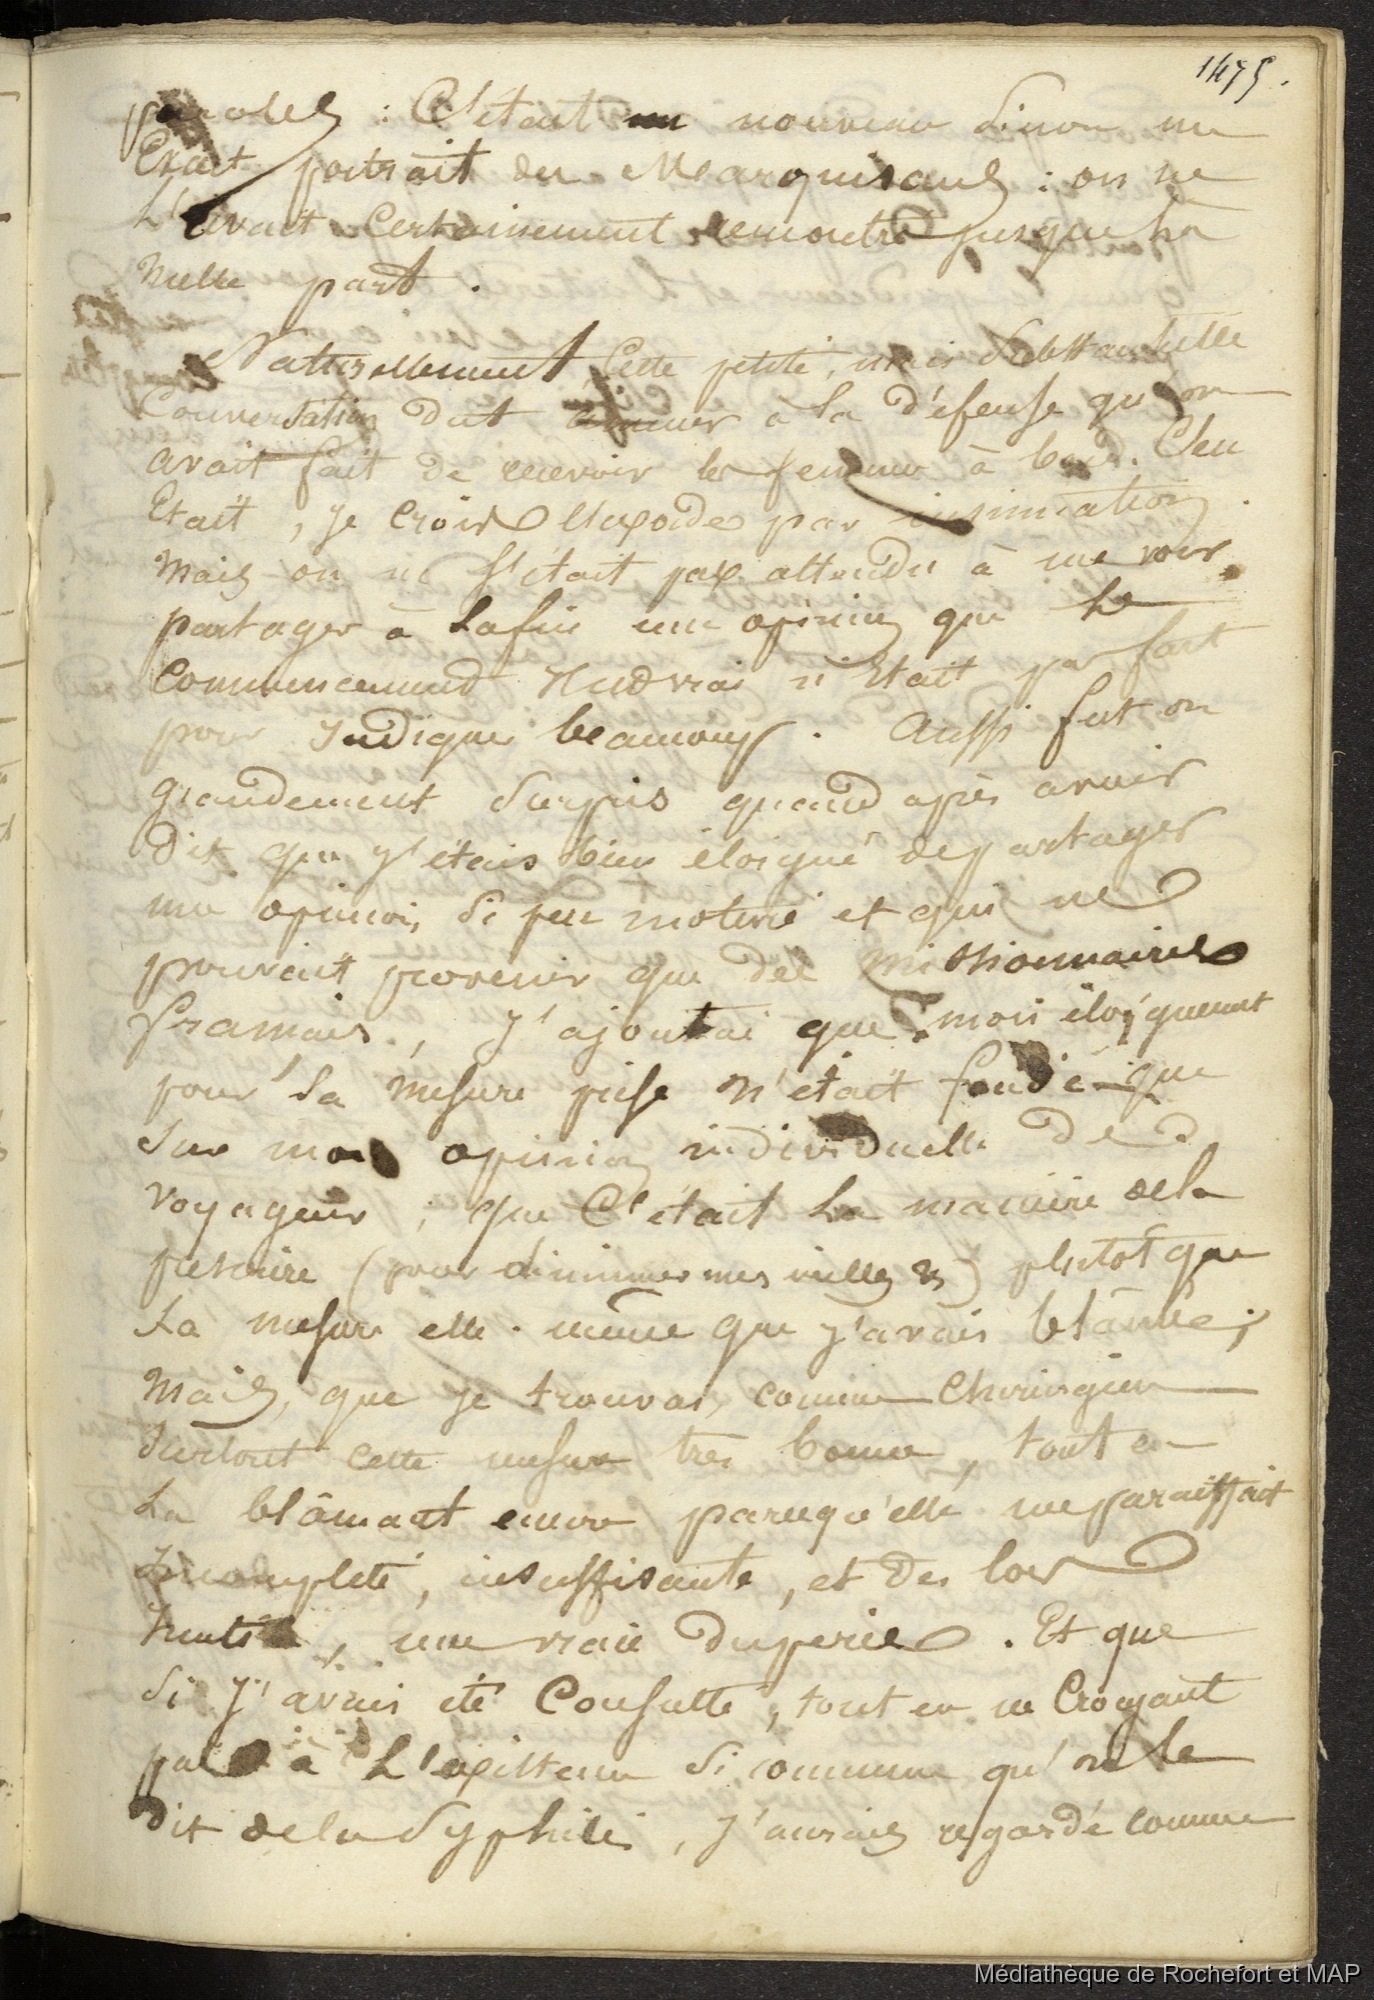 1475.
paroles : C'était un nouveau sinon un
Exact portrait des Marquisans : on ne
L'avait Certainement remontré jusque là
Nulle part .
Naturellement, Cette petite, mais substantielle
Conversation dut amener à la défense qu'on
avait fait de recevoir les femmes à bord. C'en
Etait, je crois l'exorde par insinuation .
Mais on ne s'était pas attendu à me voir
partager à la fin une opinion que le
Commencement n'était parfait
pour Indiquer beaucoup . Aussi fut on
grandement surpris quand après avoir
dit que j'étais bien éloigné de partager
une opinion, si peu motivé et qui ne
pouvait provenir que des Missionnaires
français , J'ajoutai que mon éloignement
pour la mesure prise N'était fondé que
sur mon opinion individuelle de
voyageur ; que C'était la manière de la
faire (pour diminuer mes ) plutôt que
La mesure elle-même que j'avais blâmée ;
Mais, que je trouvais, comme Chirurgien
surtout cette mesure très bonne, tout en
La blâmant encore parcequ'elle me paraissait
Incomplète, insuffisante, et des lors
Inutile, une vraie duperie . Et que
si J'avais été Consulté, tout en ne Croyant
pas à L'existence si commune qu'on le
dit de la Syphilis, J'aurais regardé comme
Médiathèque de Rochefort et MAP